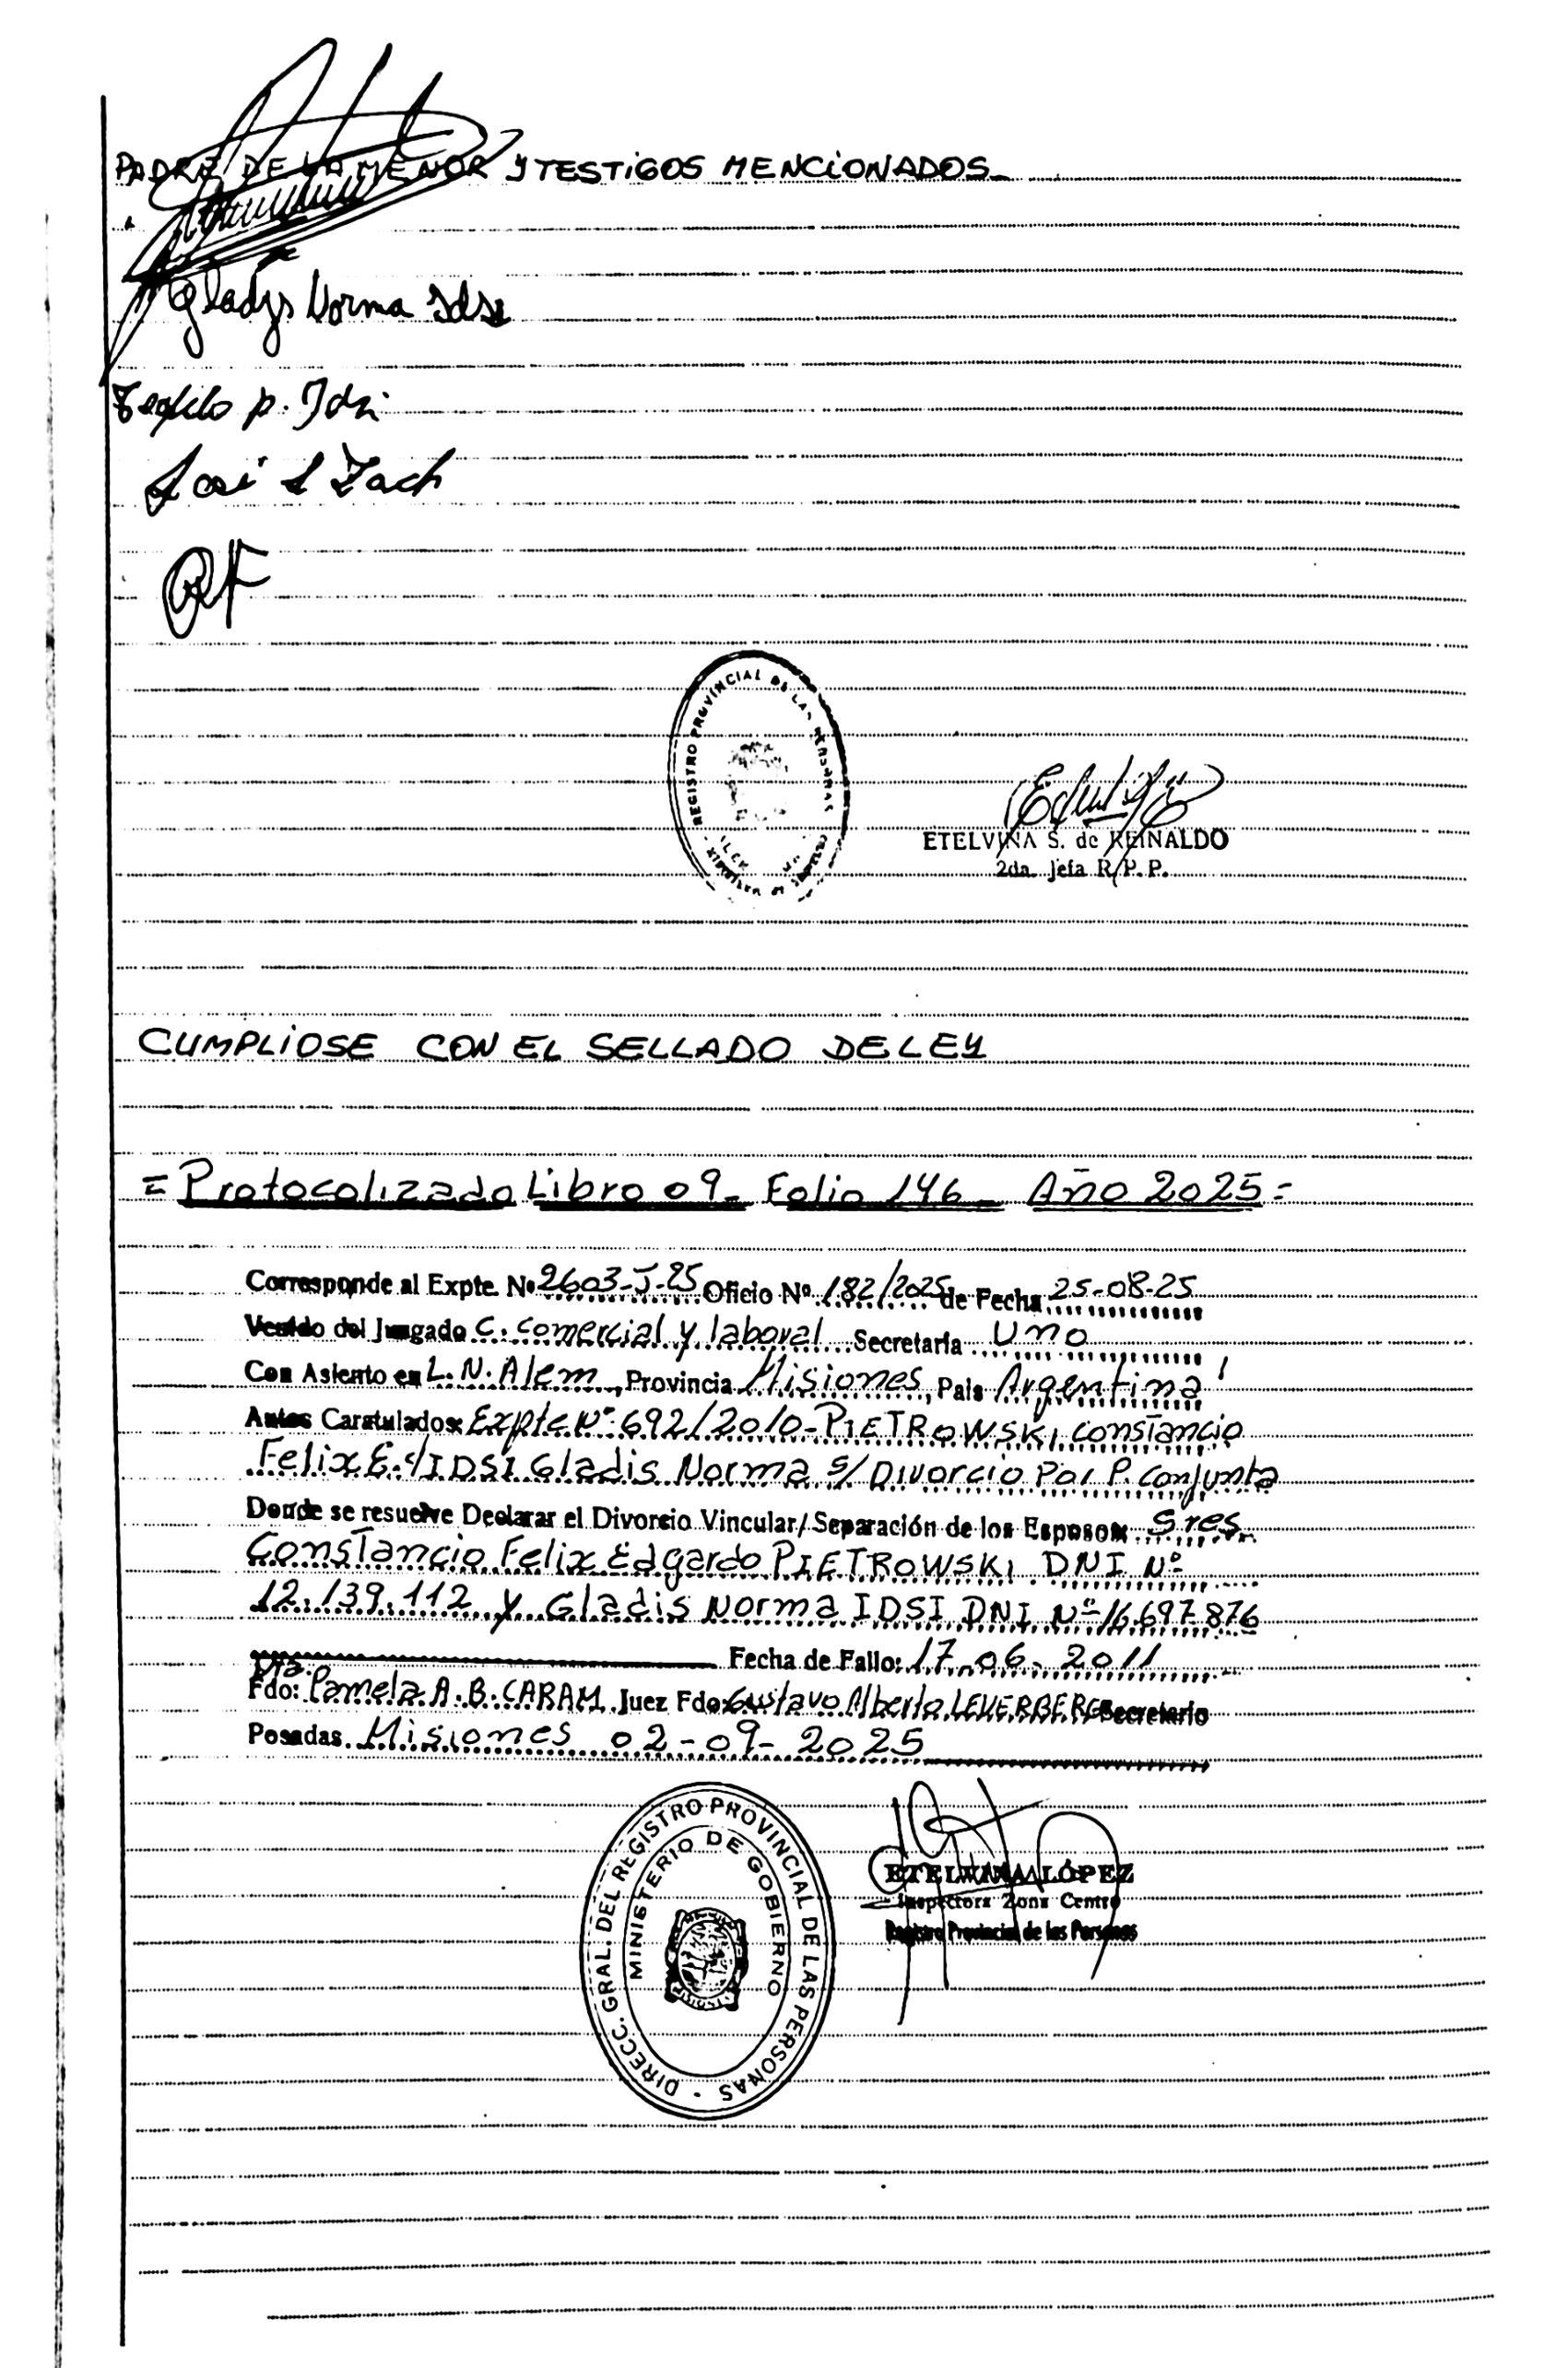 PADRE DE LA MENOR Y TESTIGOS MENCIONADOS
Gladys Norma Idsi
José L Zach
REGISTRO PROVINCIAL DE LAS PERSONAS
ETELVINA S. de REINALDO
2da. Jefa R.P.P.
CUMPLIOSE CON EL SELLADO DE LEY
= Protocolizado Libro 09 - Folio 146 - Año 2025 =
Corresponde al Expte. Nº 2603-J-25 Oficio Nº 182/2025 de Fecha 25-08-25
Venido del Juzgado C. Comercial y laboral Secretaría Uno
Con Asiento en L. N. Alem, Provincia Misiones, País Argentina
Autos Caratulados: Expte Nº 692/2010 - PIETROWSKI Constancio
Felix E. c/ IDSI Gladis Norma s/ Divorcio Por P. Conjunta
Donde se resuelve Declarar el Divorcio Vincular/Separación de los Esposos: Sres.
Constancio Felix Edgardo PIETROWSKI DNI Nº
12.139.112 y Gladis Norma IDSI DNI Nº 16.697.876
Fecha de Fallo: 17-06-2011
Dra.
Fdo: Pamela A. B. CARAM Juez Fdo: Gustavo Alberto LEVERBERG Secretario
Posadas Misiones 02-09-2025
DIRECC. GRAL. DEL REGISTRO PROVINCIAL DE LAS PERSONAS
MINISTERIO DE GOBIERNO
ETELVINA LÓPEZ
Inspectora Zona Centro
Registro Provincial de las Personas